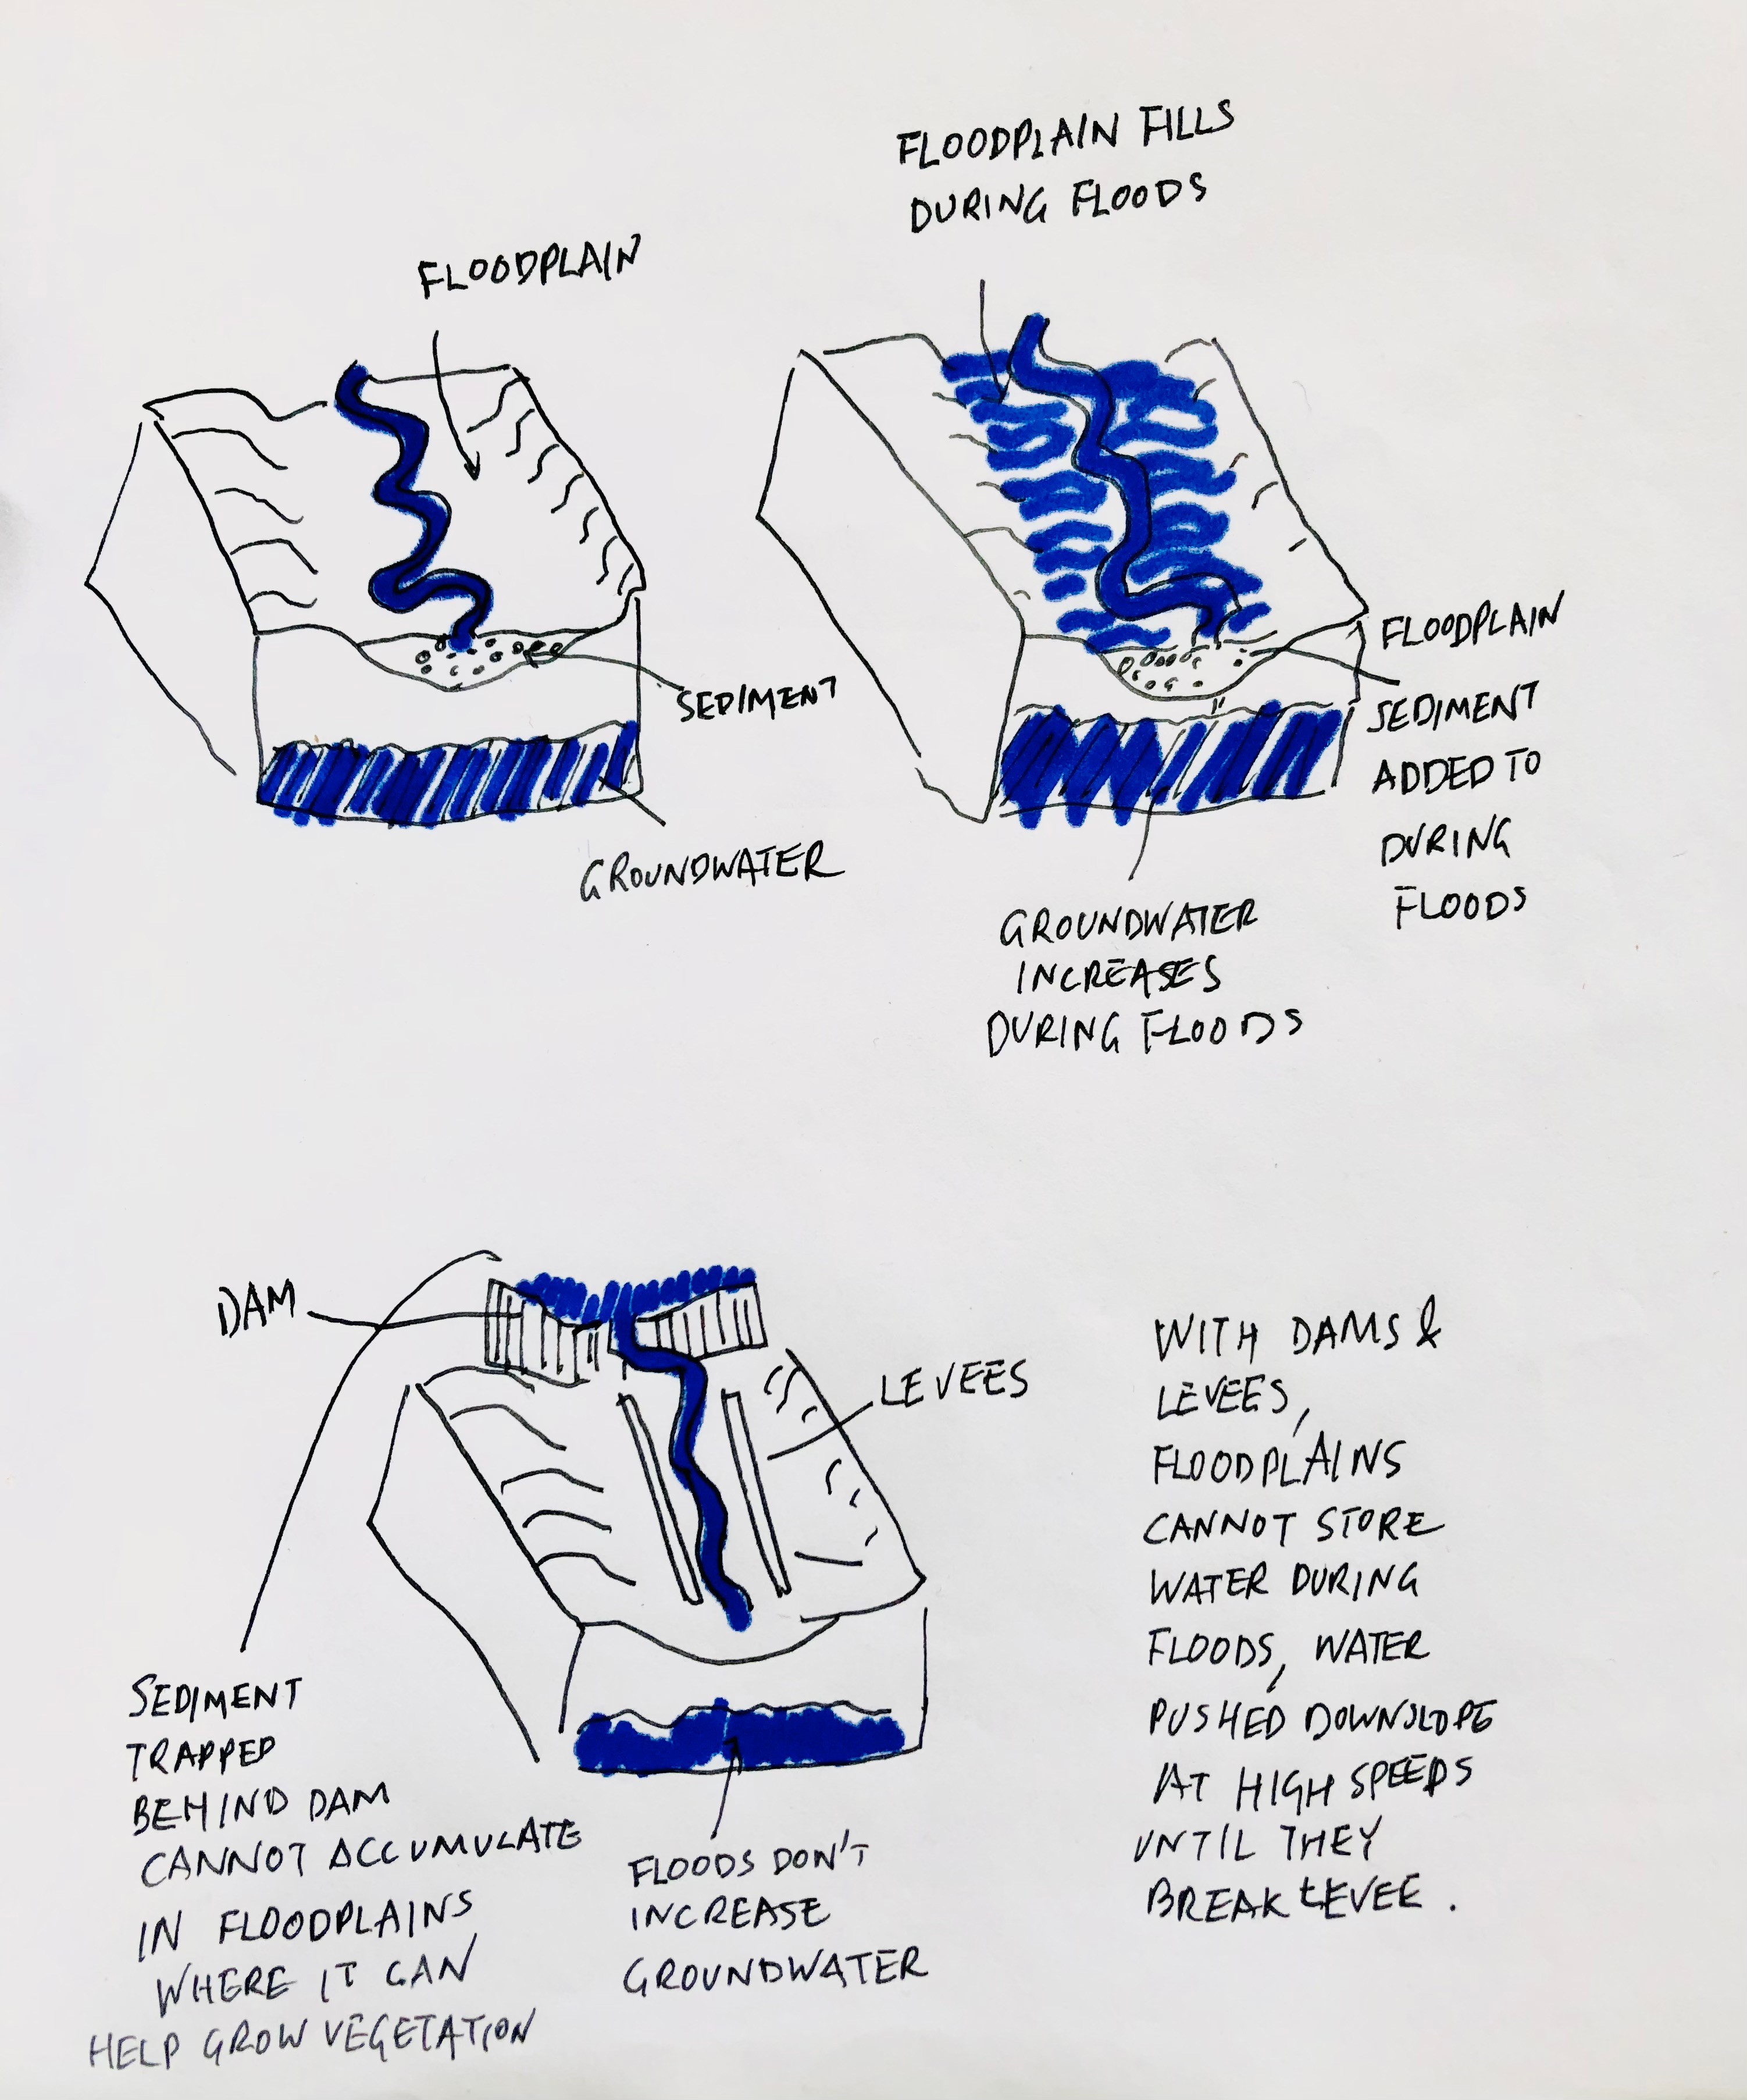 FLOODPLAIN FILLS
DURING FLOODS
FLOODPLAIN
SEDIMENT
GROUNDWATER
FLOODPLAIN
SEDIMENT
ADDED TO
DURING
FLOODS
GROUNDWATER
INCREASES
DURING FLOODS
DAM
LEVEES
SEDIMENT
TRAPPED
BEHIND DAM
CANNOT ACCUMULATE
IN FLOODPLAINS
WHERE IT CAN
HELP GROW VEGETATION
FLOODS DON'T
INCREASE
GROUNDWATER
WITH DAMS &
LEVEES,
FLOODPLAINS
CANNOT STORE
WATER DURING
FLOODS, WATER
PUSHED DOWNSLOPE
AT HIGH SPEEDS
UNTIL THEY
BREAK LEVEE.